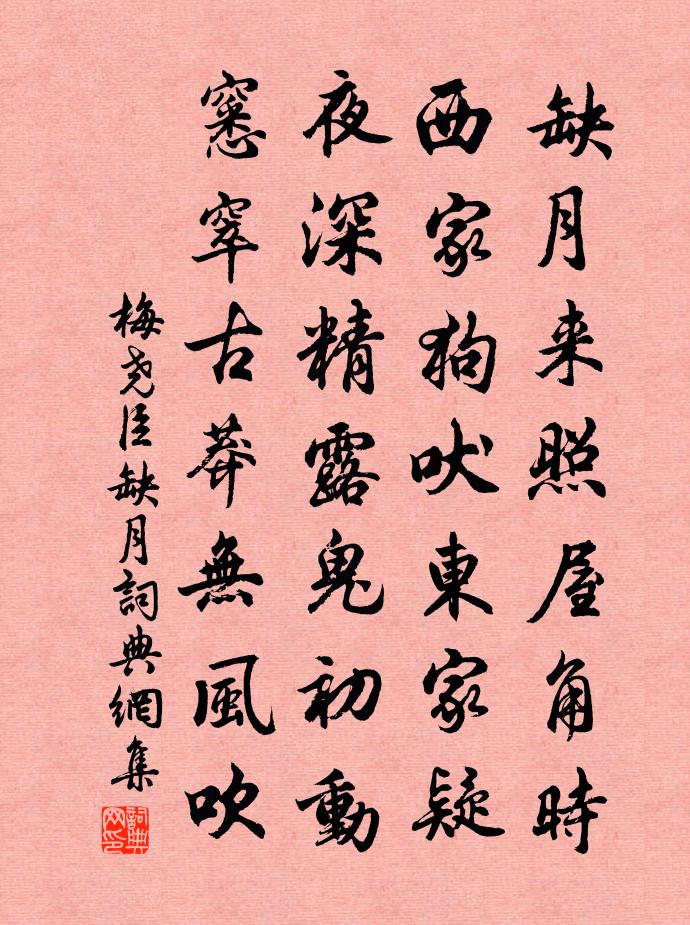 缺月来照屋角時
西家狗吠東家疑
夜深精露鬼初動
窸窣古莽無風吹
梅尧臣缺月詞典網集
詞典网印